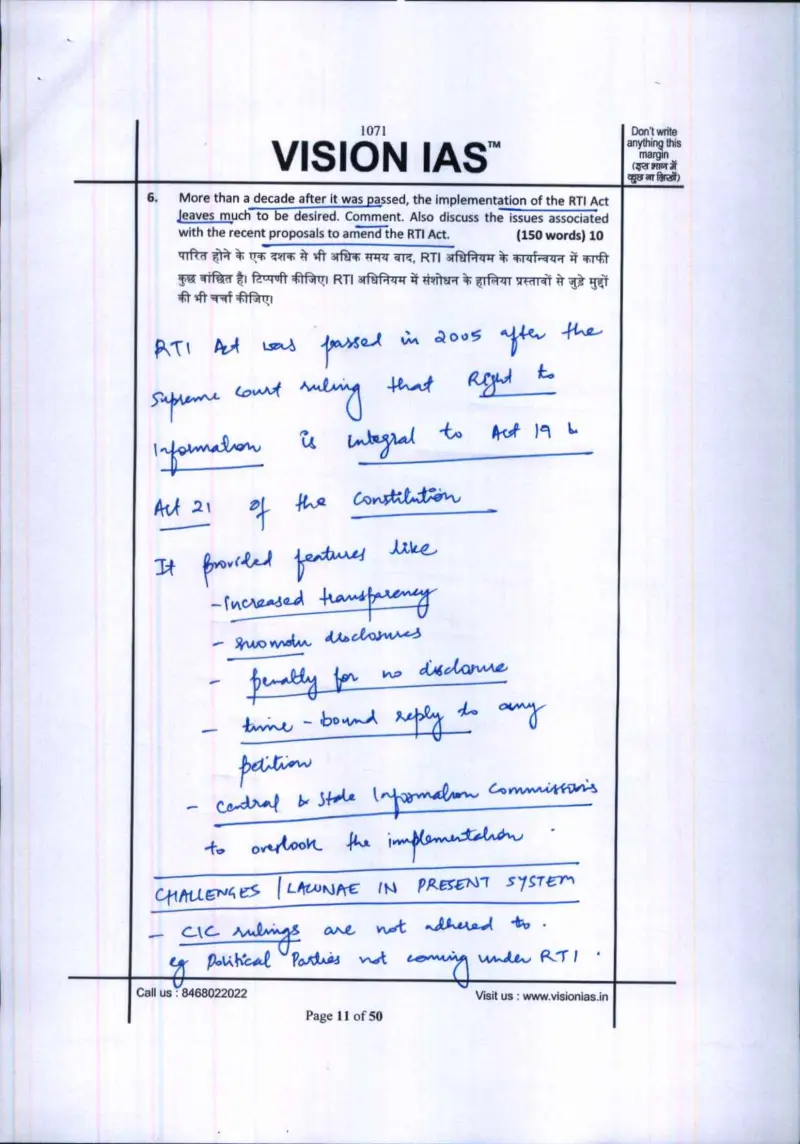 1071
VISION IAS™
Don't write
anything this
margin
(इस भाग में
कुछ ना लिखें)
6. More than a decade after it was passed, the implementation of the RTI Act
leaves much to be desired. Comment. Also discuss the issues associated
with the recent proposals to amend the RTI Act. (150 words) 10
पारित होने के एक दशक से भी अधिक समय बाद, RTI अधिनियम के कार्यान्वयन में काफी
कुछ वांछित है। टिप्पणी कीजिए। RTI अधिनियम में संशोधन के हालिया प्रस्तावों से जुड़े मुद्दों
की भी चर्चा कीजिए।
RTI Act was passed in 2005 after the
Supreme Court ruling that Right to
Information is integral to Act 19 &
Act 21 of the Constitution
It provided features like
- increased transparency
- suo motu disclosures
- penalty for no disclosure
- time-bound reply to any
petition
- Central & State Information Commissions
to overlook the implementation.
CHALLENGES / LACUNAE IN PRESENT SYSTEM
- CIC rulings are not adhered to.
eg Political Parties not coming under RTI.
Call us : 8468022022
Visit us : www.visionias.in
Page 11 of 50